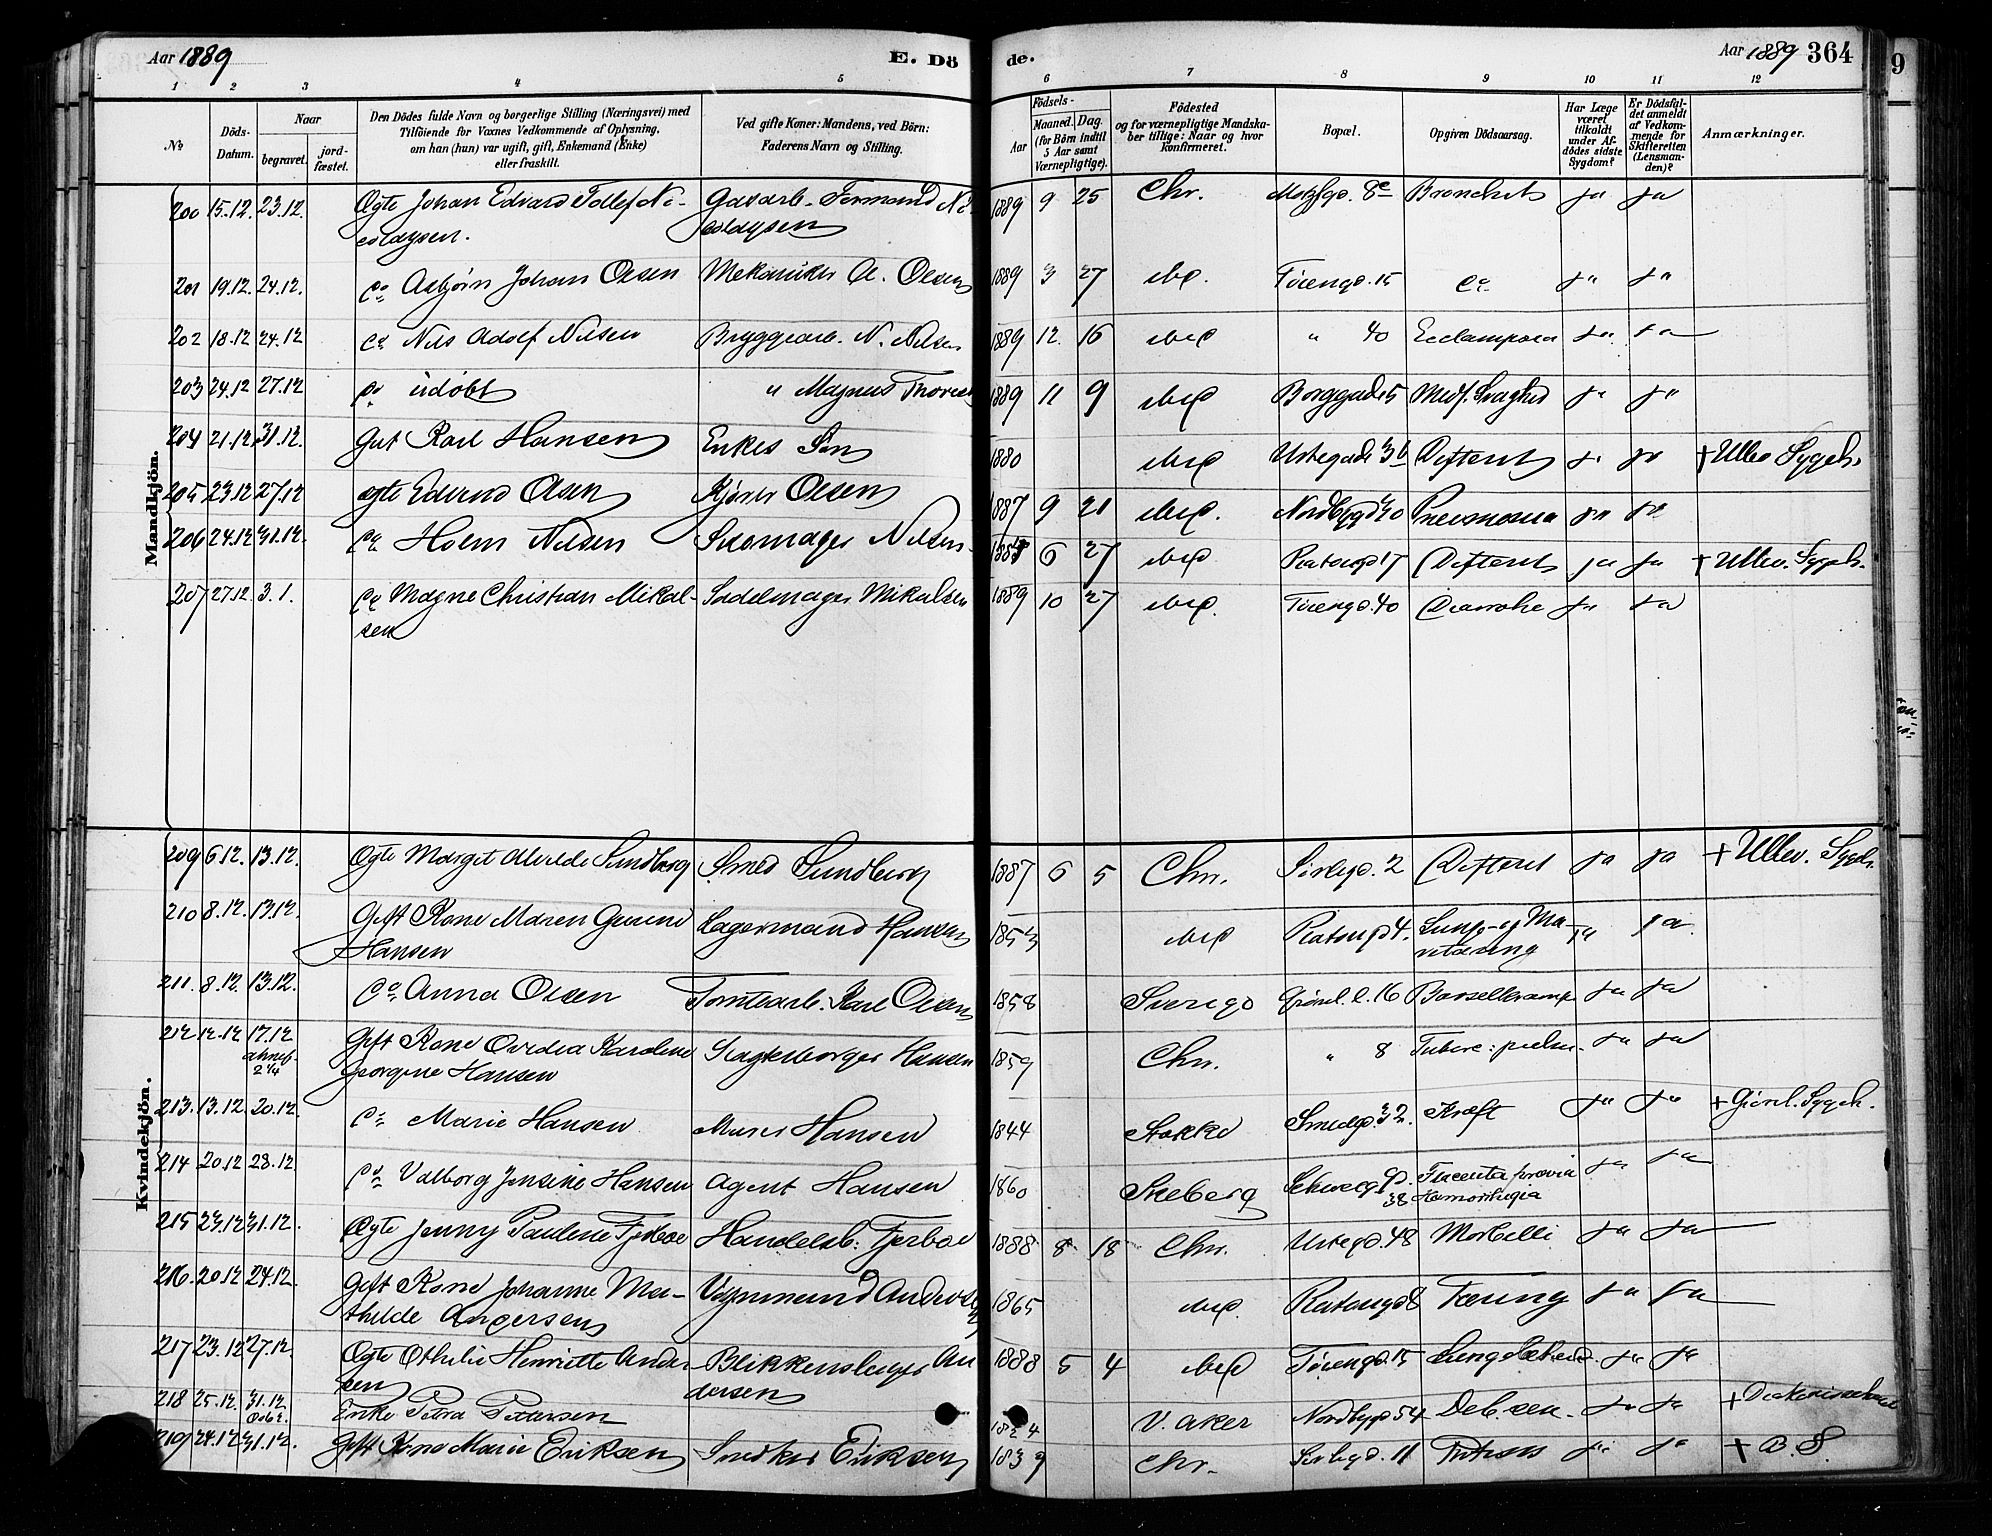 Aar 1889
E. Dö
de.
Aar 1889 364
9
1 2 3 4 5 6 7 8 9 10 11 12
No
Döds-Datum.
Naar
begravet.
jord-fæstet.
Den Dödes fulde Navn og borgerlige Stilling (Næringsvei) med
Tilföiende for Voxnes Vedkommende af Oplysning,
om han (hun) var ugift, gift, Enkemand (Enke)
eller fraskilt.
Ved gifte Koner: Mandens, ved Börn:
Faderens Navn og Stilling.
Födsels-
Aar
Maaned. Dag.
(for Börn indtil
5 Aar samt
Værnepligtige).
Födested
og for værnepligtige Mandska-
ber tillige: Naar og hvor
konfirmeret.
Bopæl.
Opgiven Dödsaarsag.
Har Læge
været
tilkaldt
under Af-
dödes sidste
Sygdom?
Er Dödsfal-
det anmeldt
af Vedkom-
mende for
Skifteretten
(Lensman-
den)?
Anmærkninger.
Mandkjön.
200 15.12. 23.12. Ægte Johan Edvard Tollef Ni- Gasarb. Formand Ni- 1889 9 25 Chr. Motzfgd. 8c Bronchit ja ja
colaysen. colaysen
201 19.12. 24.12. Do Asbjørn Johan Olsen Mekaniker A. Olsen 1889 3 27 ibid. Tøiengd. 15 Do ja ja
202 18.12 24.12 Do Nils Adolf Nilsen Bryggearb. N. Nilsen 1889 12. 16 ibid " 40 Eclampsia ja ja
203 24.12 27.12 Do udøbt " Magnus 1889 11 9 ibid Borggade 5 Medf. Svaghed ja ja
204 21.12. 31.12. Gut Karl Hansen Enkes Søn 1880 ibid Urtegade 36 Difterit ja ja + Ullev. Sygeh.
205 23.12 27.12 ægte Edvind Olsen Kjører Olsen 1887 9 21 ibid. Nordbygd 40 Pneumonia ja ja
206 24.12 31.12. Do Holm Nilsen Skomager Nilsen 6 27 ibid Platougd 17 Difterit ja ja + Ullev. Sygeh.
207 27.12. 3.1. Do Magne Christian Mikal- Sadelmager Mikalsen 1889 10 27 ibid. Tøiengd. 40 Diarrohe ja ja
sen
Kvindekjön.
209 6.12. 13.12. Ægte Margit Alvilde Sundberg Smed Sundberg 1887 6 5 Chr. 2 Difterit ja ja + Ullev. Sygeh.
210 8.12. 13.12. Gift Kone Maren Gurine Lagermand Hansen 1853 ibid Platougd 4. Lunge- og Ma- ja ja.
Hansen
211. 8.12. 13.12. Do Anna Olsen Tomtearb. Karl Olsen 1858 Sverige Grønl. l. 16 Barselkramp ja ja
212 12.12 17.12 Gift Kone Ovidia Karoline Slagterborger Hansen 1859 Chr. " 8 Tuberc: pulm. ja ja
Georgine Hansen
213. 13.12. 20.12. Do Marie Hansen Murer Hansen 1844 Stokke Smedgd. 32. Kræft ja ja + Grønl. Sygeh.
214 20.12 28.12. Do Valborg Jensine Hansen Agent Hansen 1860 Skeberg Placenta prævia ja ja
38
215 23.12 31.12. Ægte Jenny Pauline Fjerboe Handelsb. Fjerboe 1888 8 18 Chr. Urtegd. 48 Morbilli ja ja
216. 20.12 24.12. Gift Kone Johanne Ma- Vognmand Andersen 1865 ibid. Platougd 8 Tæring ja ja
thilde Andersen
217 23.12 27.12. Ægte Othilie Henriette Ander- Blikkenslager An 1888 5 4 ibid Tøiengd. 15 ja ja
sen dersen
218 25.12. 31.12 Enke Petra Petersen 1824 V. Aker Nordbygd 54 Deb. sen. ja ja + Diakonissehuset
219 24.12 31.12. Gift Kone Marie Eriksen Snedker Eriksen 1839 Chr. 11 ja ja + B. S.